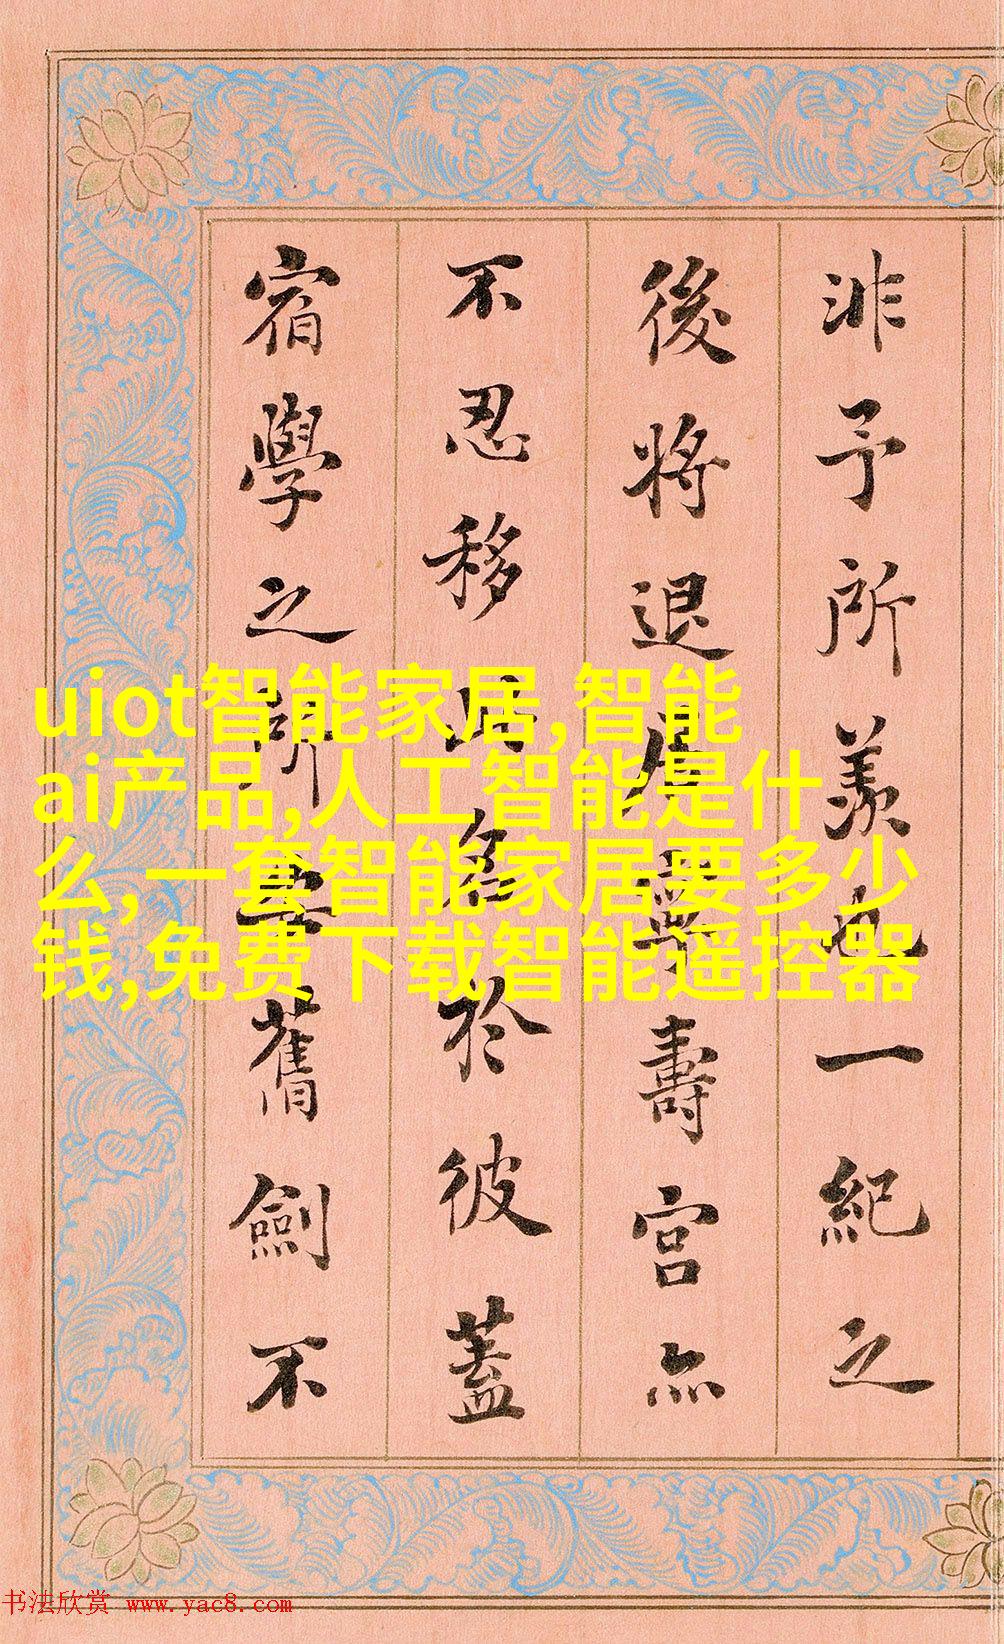 非予所羨也一紀之
後將退居寧壽宮亦
不忍移此名於彼蓋
宿學之所舊劍不
uiot智能家居,智能
ai产品,人工智能是什
么,一套智能家居要多少
钱,免费下载智能遥控器
书法欣赏 www.yac8.com